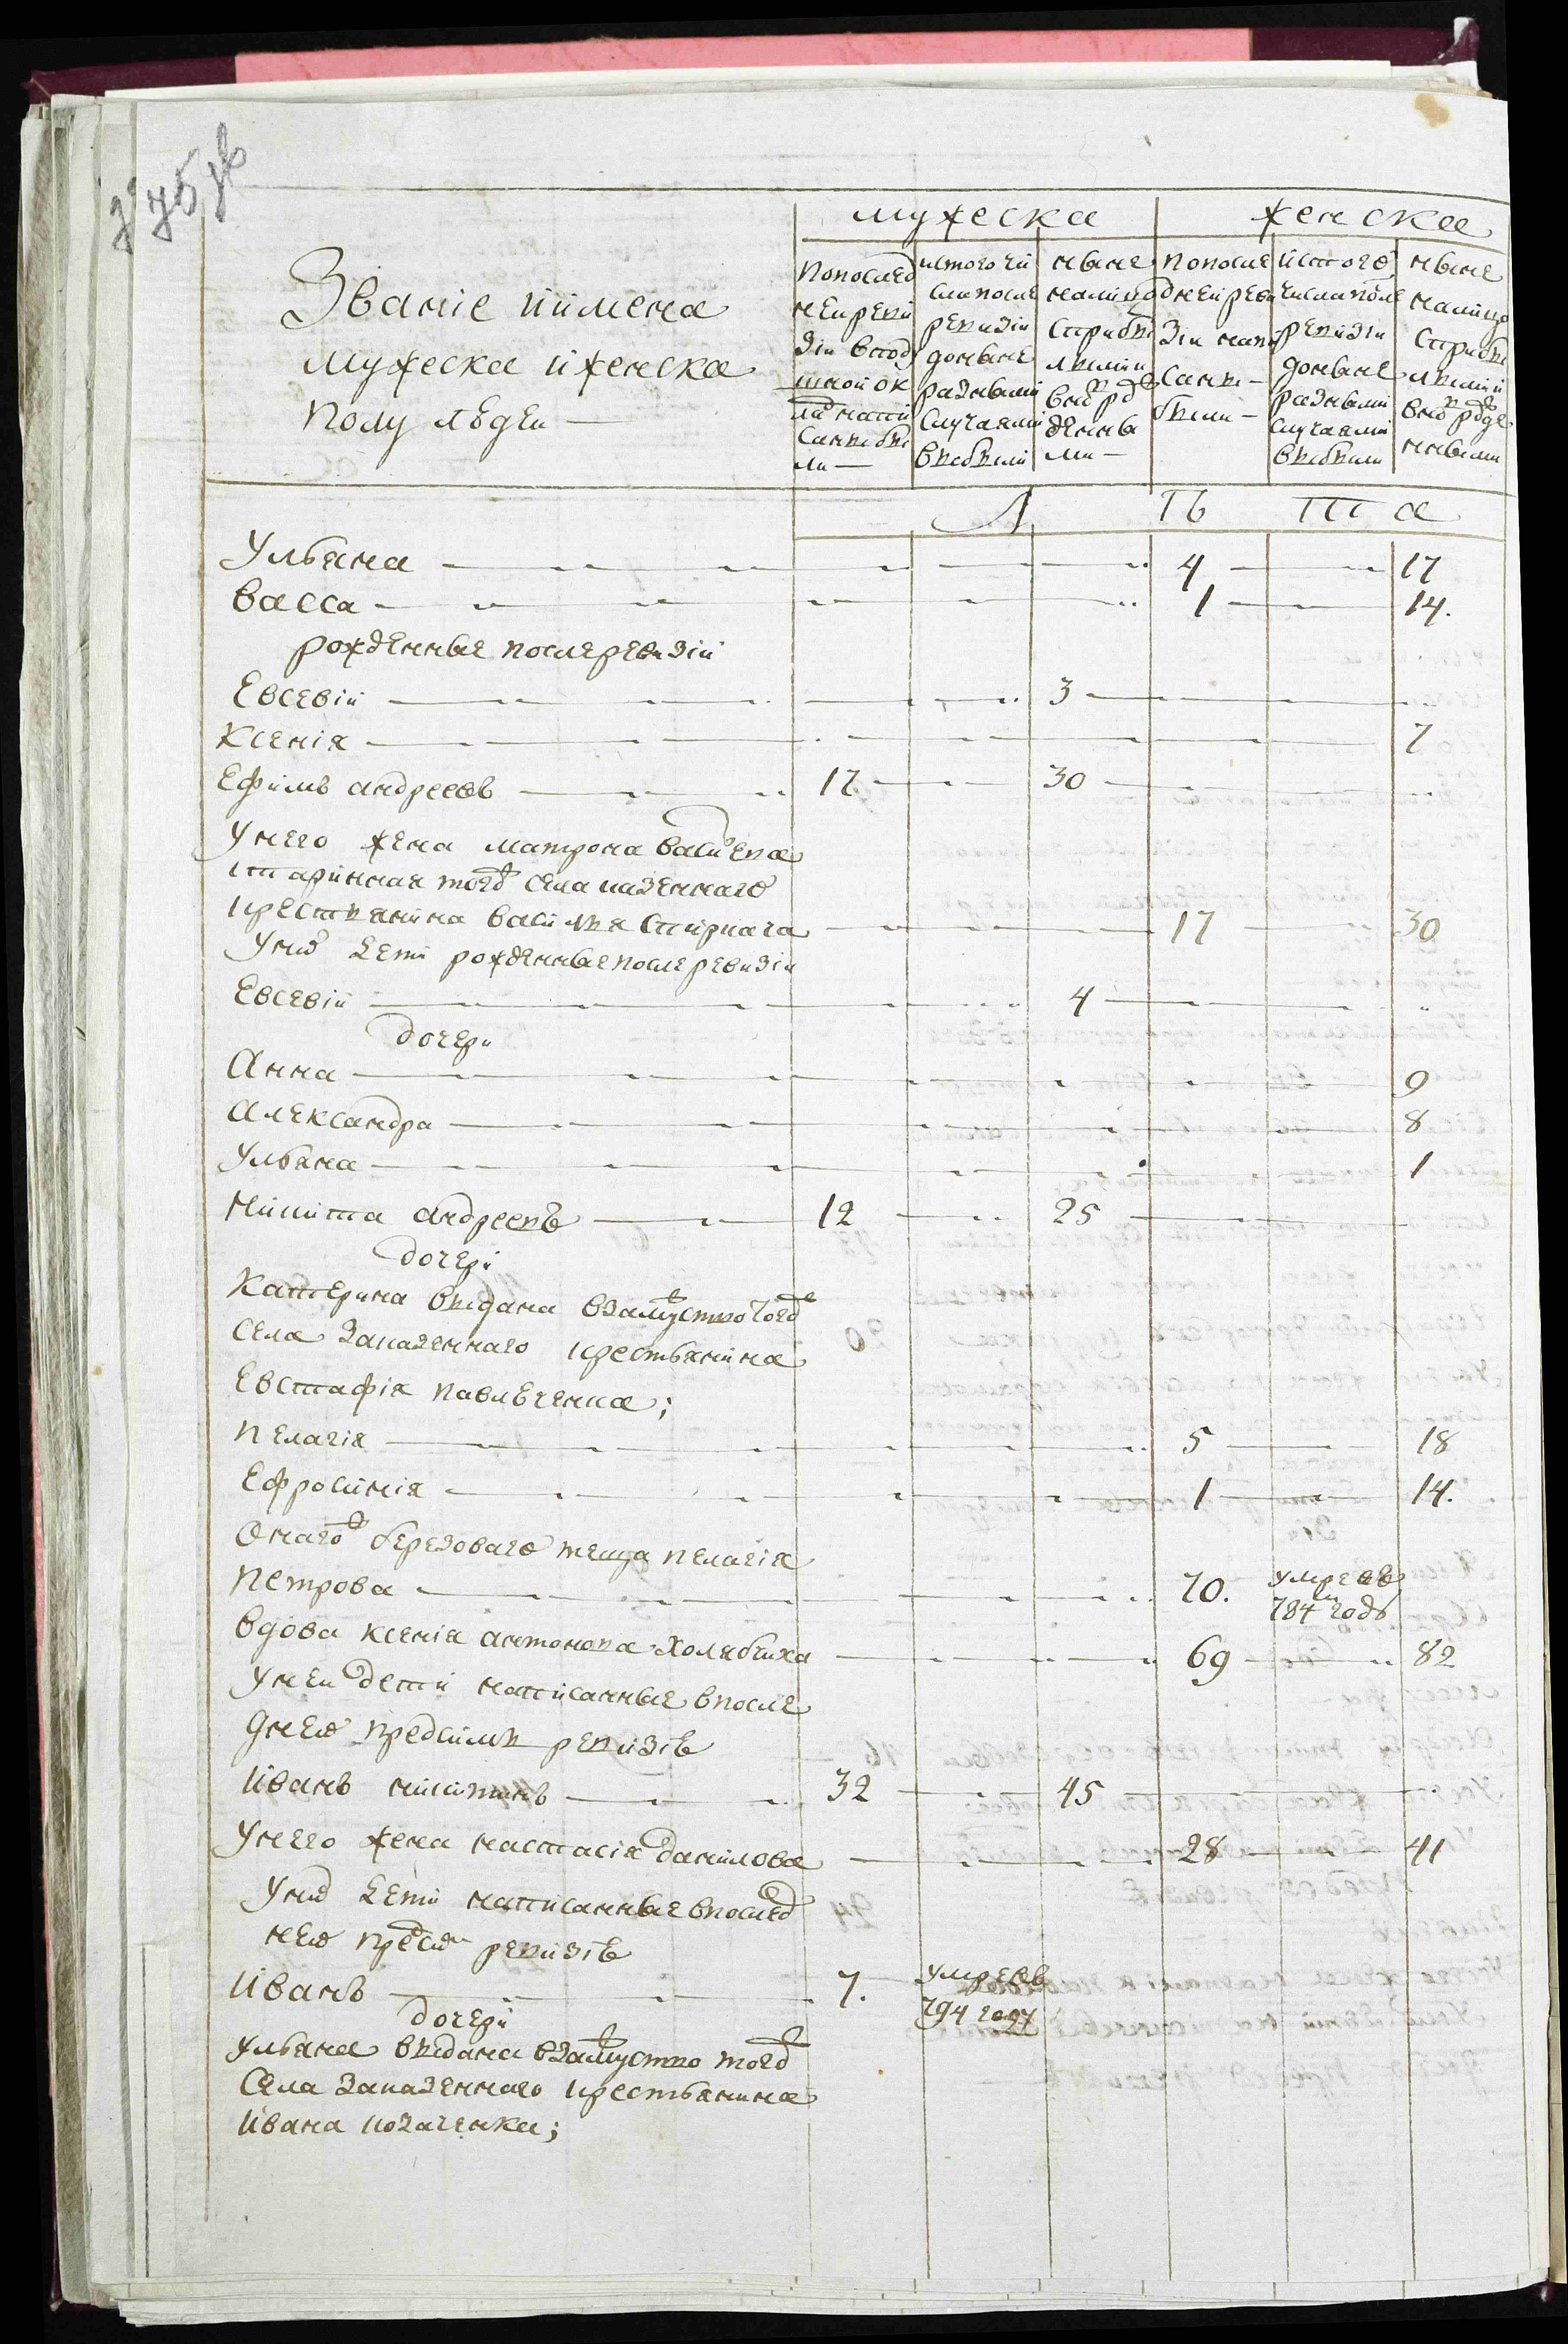 мужеска женска
Званіе иимена
мужеска иженска
полу людеи —
попослед
неи реви
зіи впод
ушной ок
лад напи
саны бы
ли —
истого чи
сла после
ревизіи
до ныне
разными
случаями
выбыли
ныне
налицо
с прибы
лыми и
внов рож
денны
ми —
попосле
дней реви
зіи напи
саны —
были —
истого
числа после
ревизіи
до ныне
разными
случаями
выбыли
ныне
налицо
с прибы
лыми и
внов рожде
нными
Л Ѣ Т а
Ульяна 4 17
Васса 1 14.
рожденные после ревизіи
Евсевіи 3
Ксенія 7
Ефимъ андреевъ 17 30
Унего жена матрона васильева
старинная того ж села казеннаго
крестьянина василья
17 30
Уних дети рожденные после ревизіи
Евсевіи 4
дочери
Анна 9
Александра 8
Ульяна 1
Никита андреевъ 12 25
дочери
Катерина выдана взамужство того ж
села законазеннаго крестьянина
Евстафія павльченка;
Пелагія 5 18
Ефросинія 1 14.
Онаго ж березоваго теща пелагія
Петрова 70. умре въ
784 м годѣ
Вдова ксенія антонова холябчиха 69 82
Унеи дети написанные впосле
днеи пред сим ревизіи
Иванъ никитинъ 32 45
Унего жена настасія данилова 28 41
Уних дети написанные впослед
неи пред сим ревизіи
Иванъ 7. умре въ
794 году
дочери
Ульяна выдана взамужство того ж
Села заказеннаго крестьянина
Ивана козаченка;